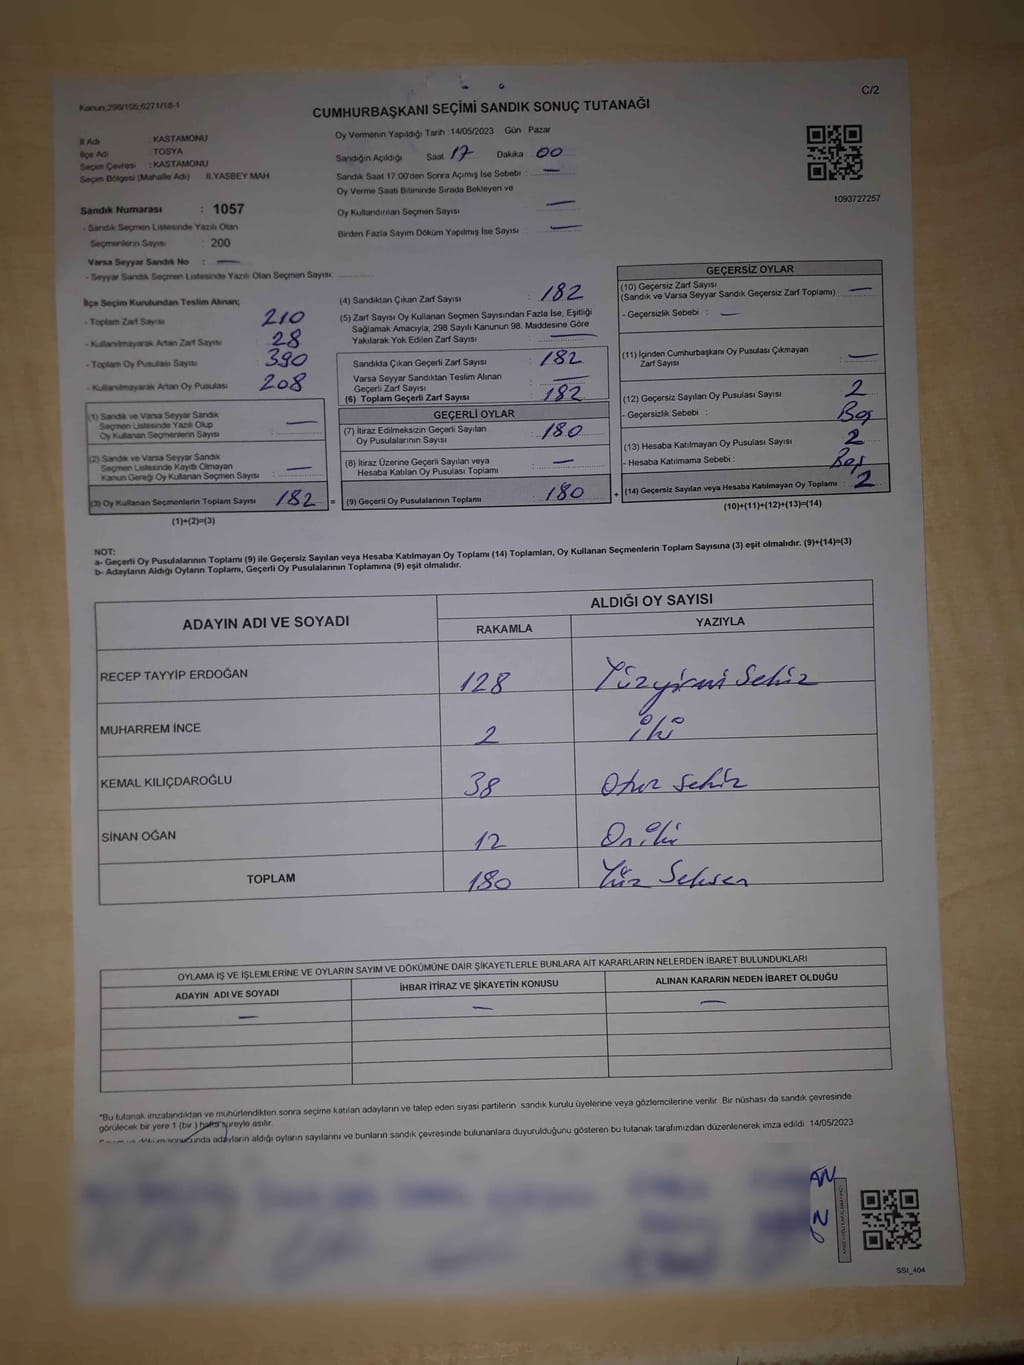 Kanun:298/105;6271/18-1
C/2
CUMHURBAŞKANI SEÇİMİ SANDIK SONUÇ TUTANAĞI
İl Adı : KASTAMONU
İlçe Adı : TOSYA
Seçim Çevresi : KASTAMONU
Seçim Bölgesi (Mahalle Adı) İLYASBEY MAH
Sandık Numarası : 1057
- Sandık Seçmen Listesinde Yazılı Olan
Seçmenlerin Sayısı : 200
Varsa Seyyar Sandık No : —
- Seyyar Sandık Seçmen Listesinde Yazılı Olan Seçmen Sayısı:
Oy Vermenin Yapıldığı Tarih : 14/05/2023 Gün : Pazar
Sandığın Açıldığı Saat 17 Dakika 00
Sandık Saat 17:00'den Sonra Açımış İse Sebebi : —
Oy Verme Saati Bitiminde Sırada Bekleyen ve
Oy Kullandırılan Seçmen Sayısı —
Birden Fazla Sayım Döküm Yapılmış İse Sayısı —
1093727257
İlçe Seçim Kurulundan Teslim Alınan;
- Toplam Zarf Sayısı 210
- Kullanılmayarak Artan Zarf Sayısı 28
- Toplam Oy Pusulası Sayısı 390
- Kullanılmayarak Artan Oy Pusulası 208
(1) Sandık ve Varsa Seyyar Sandık
Seçmen Listesinde Yazılı Olup
Oy Kullanan Seçmenlerin Sayısı —
(2) Sandık ve Varsa Seyyar Sandık
Seçmen Listesinde Kayıtlı Olmayan
Kanun Gereği Oy Kullanan Seçmen Sayısı : —
(3) Oy Kullanan Seçmenlerin Toplam Sayısı 182 =
(1)+(2)=(3)
(4) Sandıktan Çıkan Zarf Sayısı : 182
(5) Zarf Sayısı Oy Kullanan Seçmen Sayısından Fazla İse, Eşitliği
Sağlamak Amacıyla; 298 Sayılı Kanunun 98. Maddesine Göre
Yakılarak Yok Edilen Zarf Sayısı : —
Sandıkta Çıkan Geçerli Zarf Sayısı : 182
Varsa Seyyar Sandıktan Teslim Alınan
Geçerli Zarf Sayısı : —
(6) Toplam Geçerli Zarf Sayısı : 182
GEÇERLİ OYLAR
(7) İtiraz Edilmeksizin Geçerli Sayılan
Oy Pusulalarının Sayısı : 180
(8) İtiraz Üzerine Geçerli Sayılan veya
Hesaba Katılan Oy Pusulası Toplamı : —
(9) Geçerli Oy Pusulalarının Toplamı : 180 +
GEÇERSİZ OYLAR
(10) Geçersiz Zarf Sayısı
(Sandık ve Varsa Seyyar Sandık Geçersiz Zarf Toplamı) : —
- Geçersizlik Sebebi : —
(11) İçinden Cumhurbaşkanı Oy Pusulası Çıkmayan
Zarf Sayısı : —
(12) Geçersiz Sayılan Oy Pusulası Sayısı : 2
- Geçersizlik Sebebi : Boş
(13) Hesaba Katılmayan Oy Pusulası Sayısı : 2
- Hesaba Katılmama Sebebi : Boş
(14) Geçersiz Sayılan veya Hesaba Katılmayan Oy Toplamı : 2
(10)+(11)+(12)+(13)=(14)
NOT:
a- Geçerli Oy Pusulalarının Toplamı (9) ile Geçersiz Sayılan veya Hesaba Katılmayan Oy Toplamı (14) Toplamları, Oy Kullanan Seçmenlerin Toplam Sayısına (3) eşit olmalıdır. (9)+(14)=(3)
b- Adayların Aldığı Oyların Toplamı, Geçerli Oy Pusulalarının Toplamına (9) eşit olmalıdır.
ADAYIN ADI VE SOYADI
ALDIĞI OY SAYISI
RAKAMLA YAZIYLA
RECEP TAYYİP ERDOĞAN 128 Yüzyirmi Sekiz
MUHARREM İNCE 2 iki
KEMAL KILIÇDAROĞLU 38 Otuz Sekiz
SİNAN OĞAN 12 Oniki
TOPLAM 180 Yüz Seksen
OYLAMA İŞ VE İŞLEMLERİNE VE OYLARIN SAYIM VE DÖKÜMÜNE DAİR ŞİKAYETLERLE BUNLARA AİT KARARLARIN NELERDEN İBARET BULUNDUKLARI
ADAYIN ADI VE SOYADI İHBAR İTİRAZ VE ŞİKAYETİN KONUSU ALINAN KARARIN NEDEN İBARET OLDUĞU
— — —
*Bu tutanak imzalandıktan ve mühürlendikten sonra seçime katılan adayların ve talep eden siyasi partilerin sandık kurulu üyelerine veya gözlemcilerine verilir. Bir nüshası da sandık çevresinde
görülecek bir yere 1 (bir ) hafta süreyle asılır.
sonucunda adayların aldığı oyların sayılarını ve bunların sandık çevresinde bulunanlara duyurulduğunu gösteren bu tutanak tarafımızdan düzenlenerek imza edildi. 14/05/2023
SSI_404